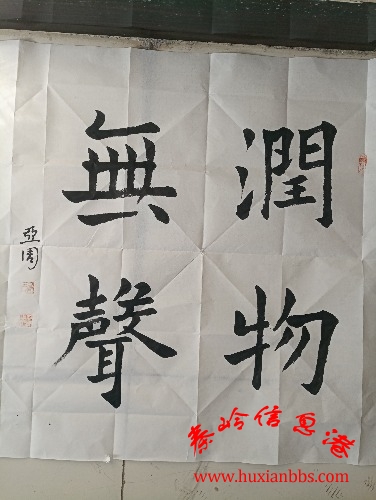 潤物
無聲
亞周
秦岭信息港
www.huxianbbs.com